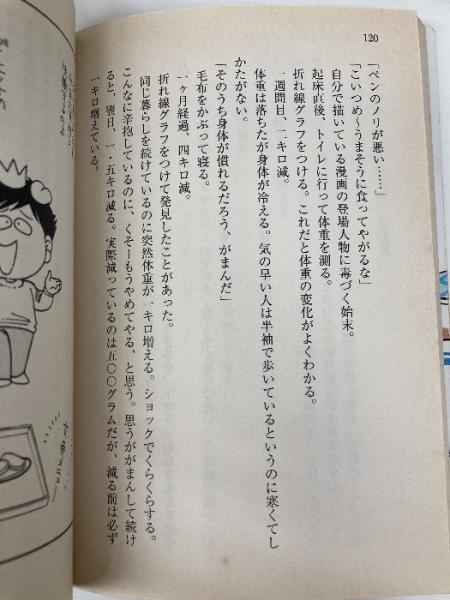 120
「ペンのノリが悪い……」
「こいつめ〜うまそうに食ってやがるな」
自分で描いている漫画の登場人物に毒づく始末。
起床直後、トイレに行って体重を測る。
折れ線グラフをつける。これだと体重の変化がよくわかる。
一週間目、二キロ減。
体重は落ちたが身体が冷える。気の早い人は半袖で歩いているというのに寒くてし
かたがない。
「そのうち身体が慣れるだろう、がまんだ」
毛布をかぶって寝る。
一ヶ月経過、四キロ減。
折れ線グラフをつけて発見したことがあった。
同じ暮らしを続けているのに突然体重が一キロ増える。ショックでくらくらする。
こんなに辛抱しているのに、くそーもうやめてやる、と思う。思うががまんして続け
ると、翌日、一・五キロ減る。実際減っているのは五〇〇グラムだが、減る前は必ず
一キロ増えている。